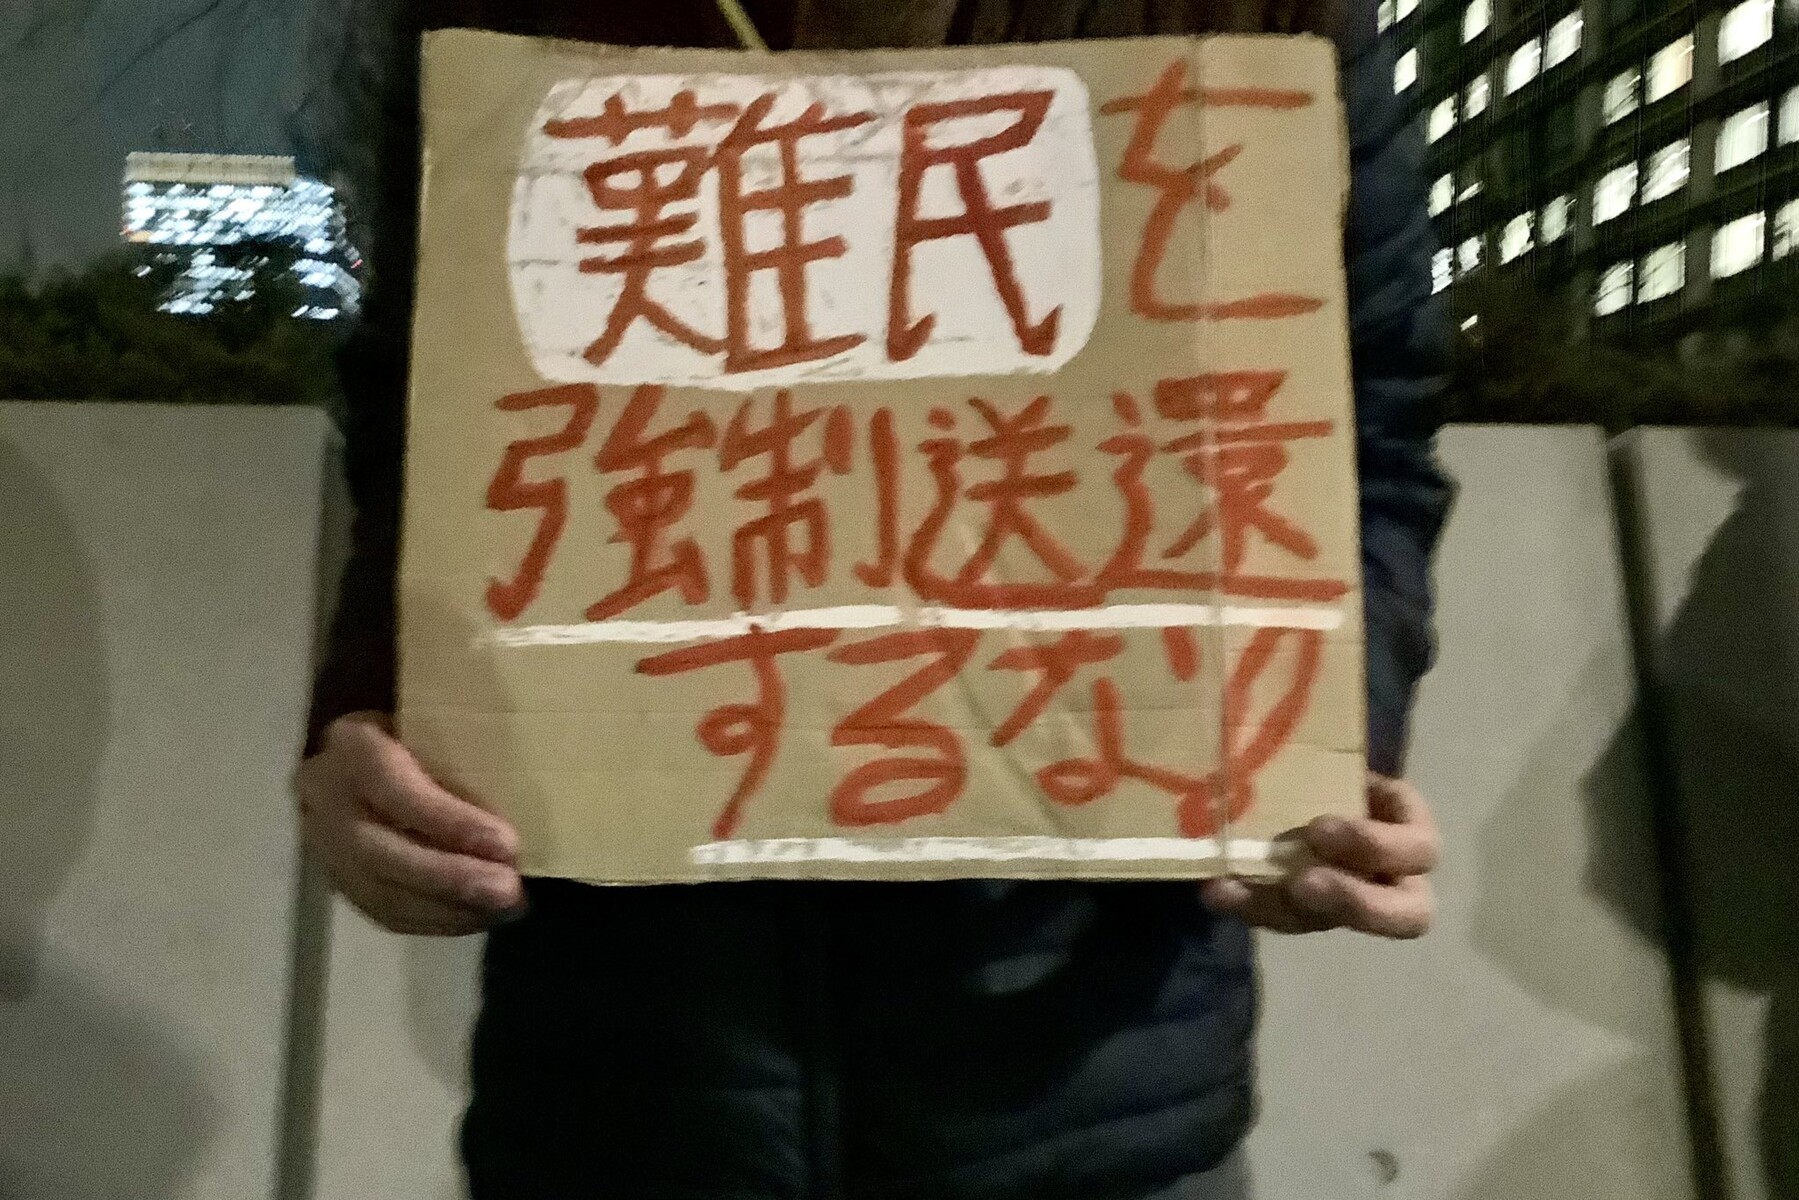 難民を
強制送還
するな!!